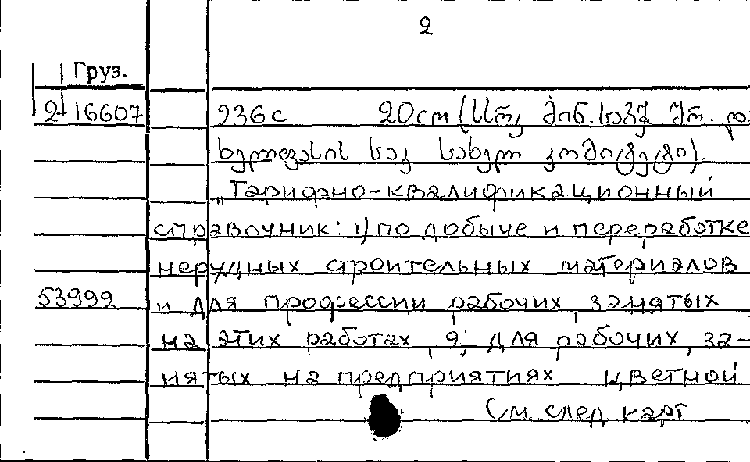 2
Груз.
2-16607 236 с 20 სთ (სსრკ მინ. საბჭ შრ. და
ხელფასის საკ. სახელ კომიტეტი)
„Тарифно-квалификационный
справочник: 1) по добыче и переработке
нерудных строительных материалов
53999 и для профессии рабочих, занятых
на этих работах, 2; для рабочих, за-
нятых на предприятиях цветной
См. след. карт